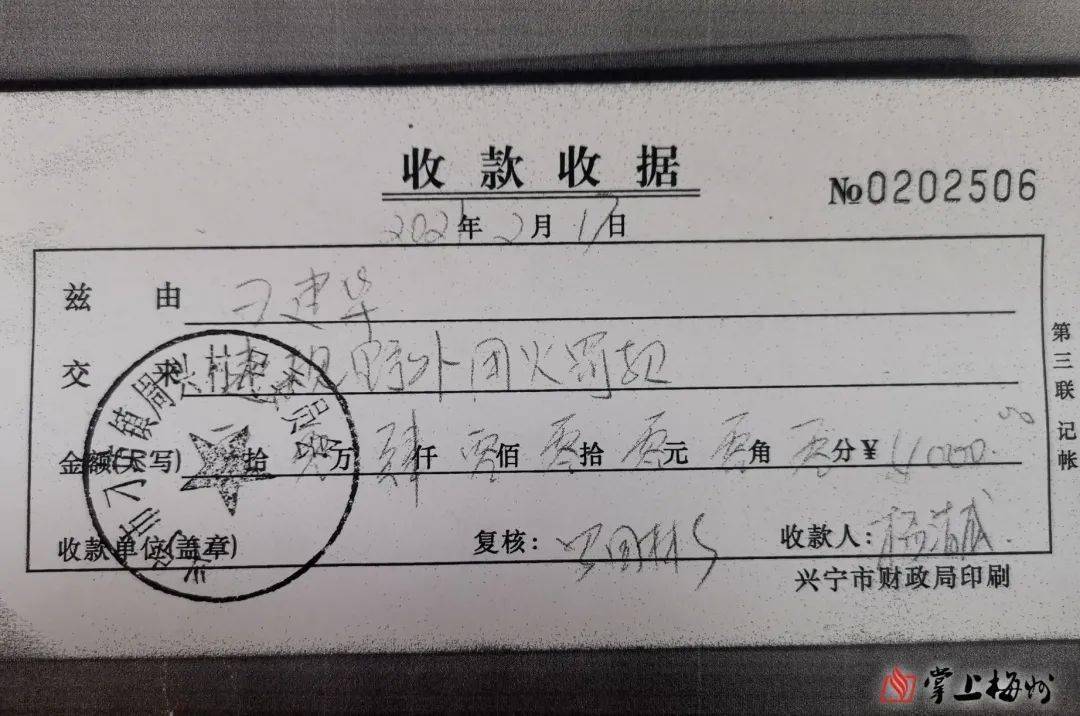 收款收据
№0202506
2021年2月17日
兹由 刁建华
交来 违规野外用火罚款
金额(大写) 拾零万肆仟零佰零拾零元零角零分¥4000.00
收款单位(盖章) 复核: 收款人:
兴宁市财政局印刷
第三联 记帐
掌上梅州